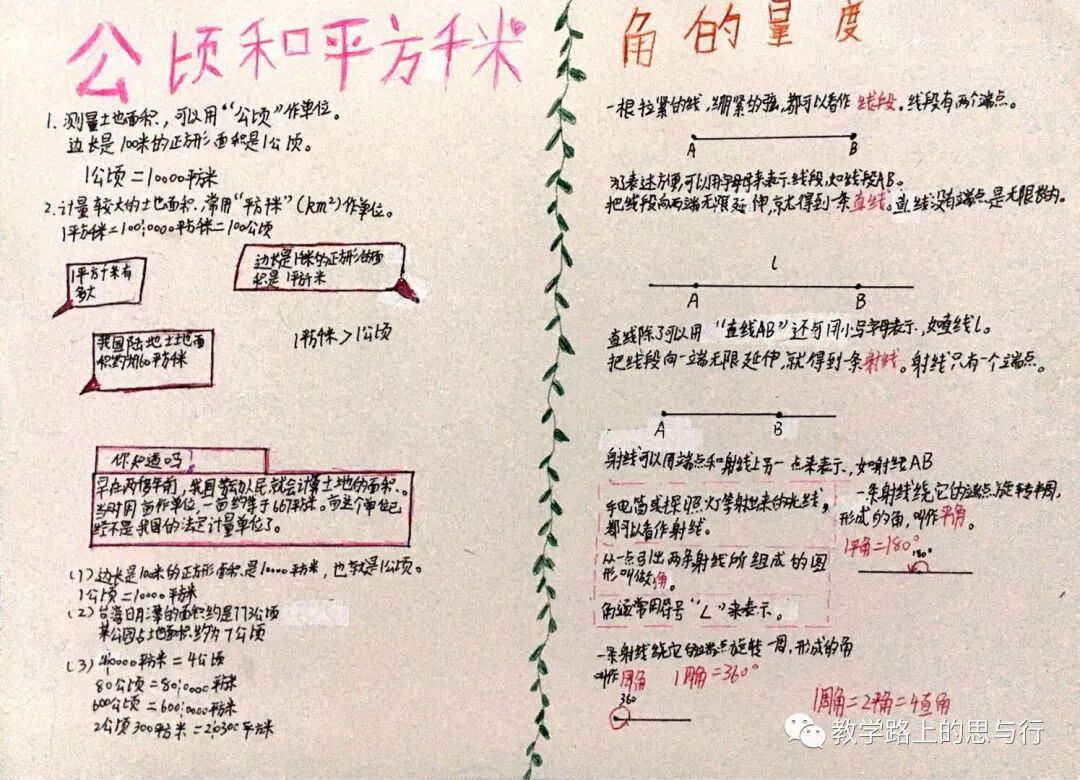 公顷和平方千米
1. 测量土地面积,可以用“公顷”作单位。
边长是100米的正方形面积是1公顷。
1公顷=10000平方米
2. 计量较大的土地面积,常用“平方千米”(km²)作单位。
1平方千米=1000000平方米=100公顷
1平方千米有
多大
边长是1千米的正方形的面
积是1平方千米
我国陆地土地面
积约为960平方千米
1平方千米>1公顷
你知道吗
早在两千多年前,我国劳动人民就会计算土地的面积.
当时用 亩作单位,一亩约等于667平方米。而这个单位已
经不是我国的法定计量单位了。
(1)边长是100米的正方形面积是10000平方米,也就是1公顷。
1公顷=10000平方米
(2)台湾日月潭的面积约是773公顷
某公园占地面积约为7公顷
(3)40000平方米=4公顷
80公顷=800000平方米
600公顷=6000000平方米
2公顷300平方米=20300平方米
角的量度
一根拉紧的线,绷紧的弦,都可以看作线段。线段有两个端点。
A B
为了表述方便,可以用字母来表示线段,如线段AB。
把线段向两端无限延伸,就得到一条直线。直线没有端点,是无限长的。
l
A B
直线除了可以用“直线AB”还可用小写字母表示,如直线l。
把线段向一端无限延伸,就得到一条射线。射线只有一个端点。
A B
射线可以用端点和射线上另一点来表示,如射线AB
手电筒或探照灯等射出来的光线,
都可以看作射线。
从一点引出两条射线所组成的图
形叫做角。
角通常用符号“∠”来表示。
一条射线绕它的端点旋转半周,
形成的角,叫作平角。
1平角=180°
180°
一条射线绕它的端点旋转一周,形成的角
叫作周角 1周角=360°
360
1周角=2平角=4直角
教学路上的思与行